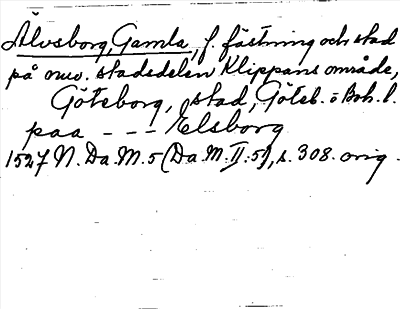 Älvsborg, Gamla, f. fästning och stad
på nuv. stadsdelen Klippans område,
Göteborg, stad, Göteb. o. Boh. l.
paa - - - Elsborg
1527 N. Da. M. 5 (Da. M. II. 5), s. 308. orig.